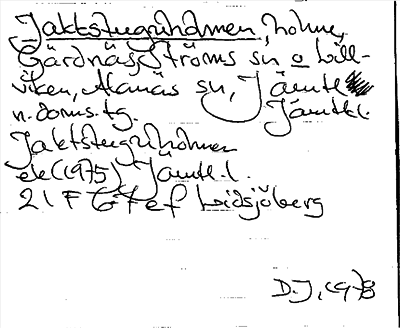 Jaktstuguholmen, holme,
Gärdnäs, Ströms sn o Lill-
viken, Alanäs sn, Jämtl
n. doms.tg. Jämtl.l.
Jaktstuguholmen
ek (1975) Jämtl.l.
21 F 6-7 e f Lidsjöberg
D.J, 1978